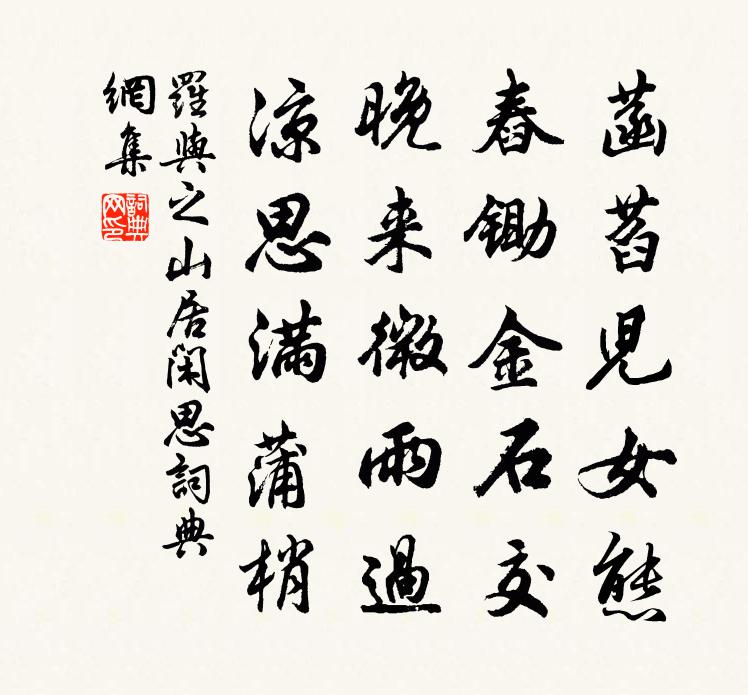 菡萏児女態
舂鋤金石交
晚来微雨過
涼思滿蒲梢
羅與之山居閑思詞典
網集
詞典
网印